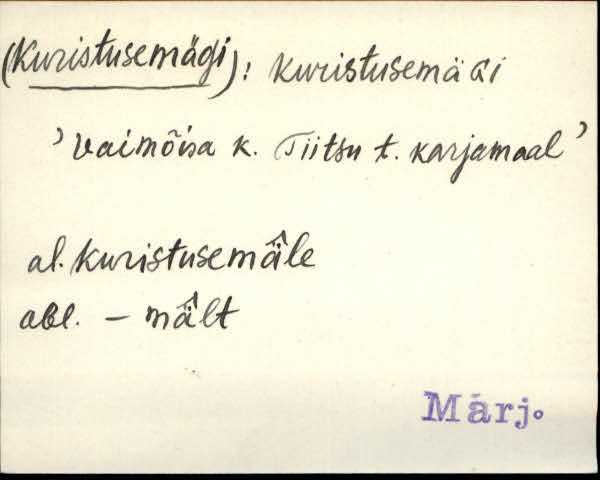 (Kuristusemägi): kuristusemäGi
'Vaimõisa k. Tiitsu t. karjamaal'
al. kuristusemä̂le
abl. – mä̂lt
Märj.